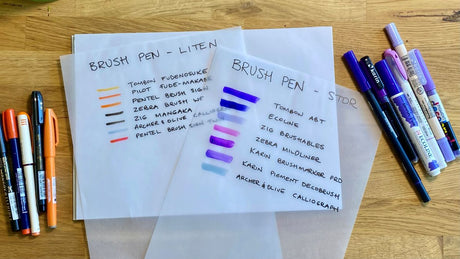 BRUSH PEN - LITEN
TOMBOW FUDENOSUKE
PILOT FUDE-MAKASE
PENTEL BRUSH SIGN
ZEBRA BRUSH WF
ZIG MANGAKA
ARCHER & OLIVE
PENTEL BRUSH SIGN
BRUSH PEN - STOR
TOMBOW ABT
ECOLINE
ZIG BRUSHABLES
ZEBRA MILDLINER
KARIN BRUSHMARKER PRO
KARIN PIGMENT DECOBRUSH
ARCHER & OLIVE CALLIOGRAPH